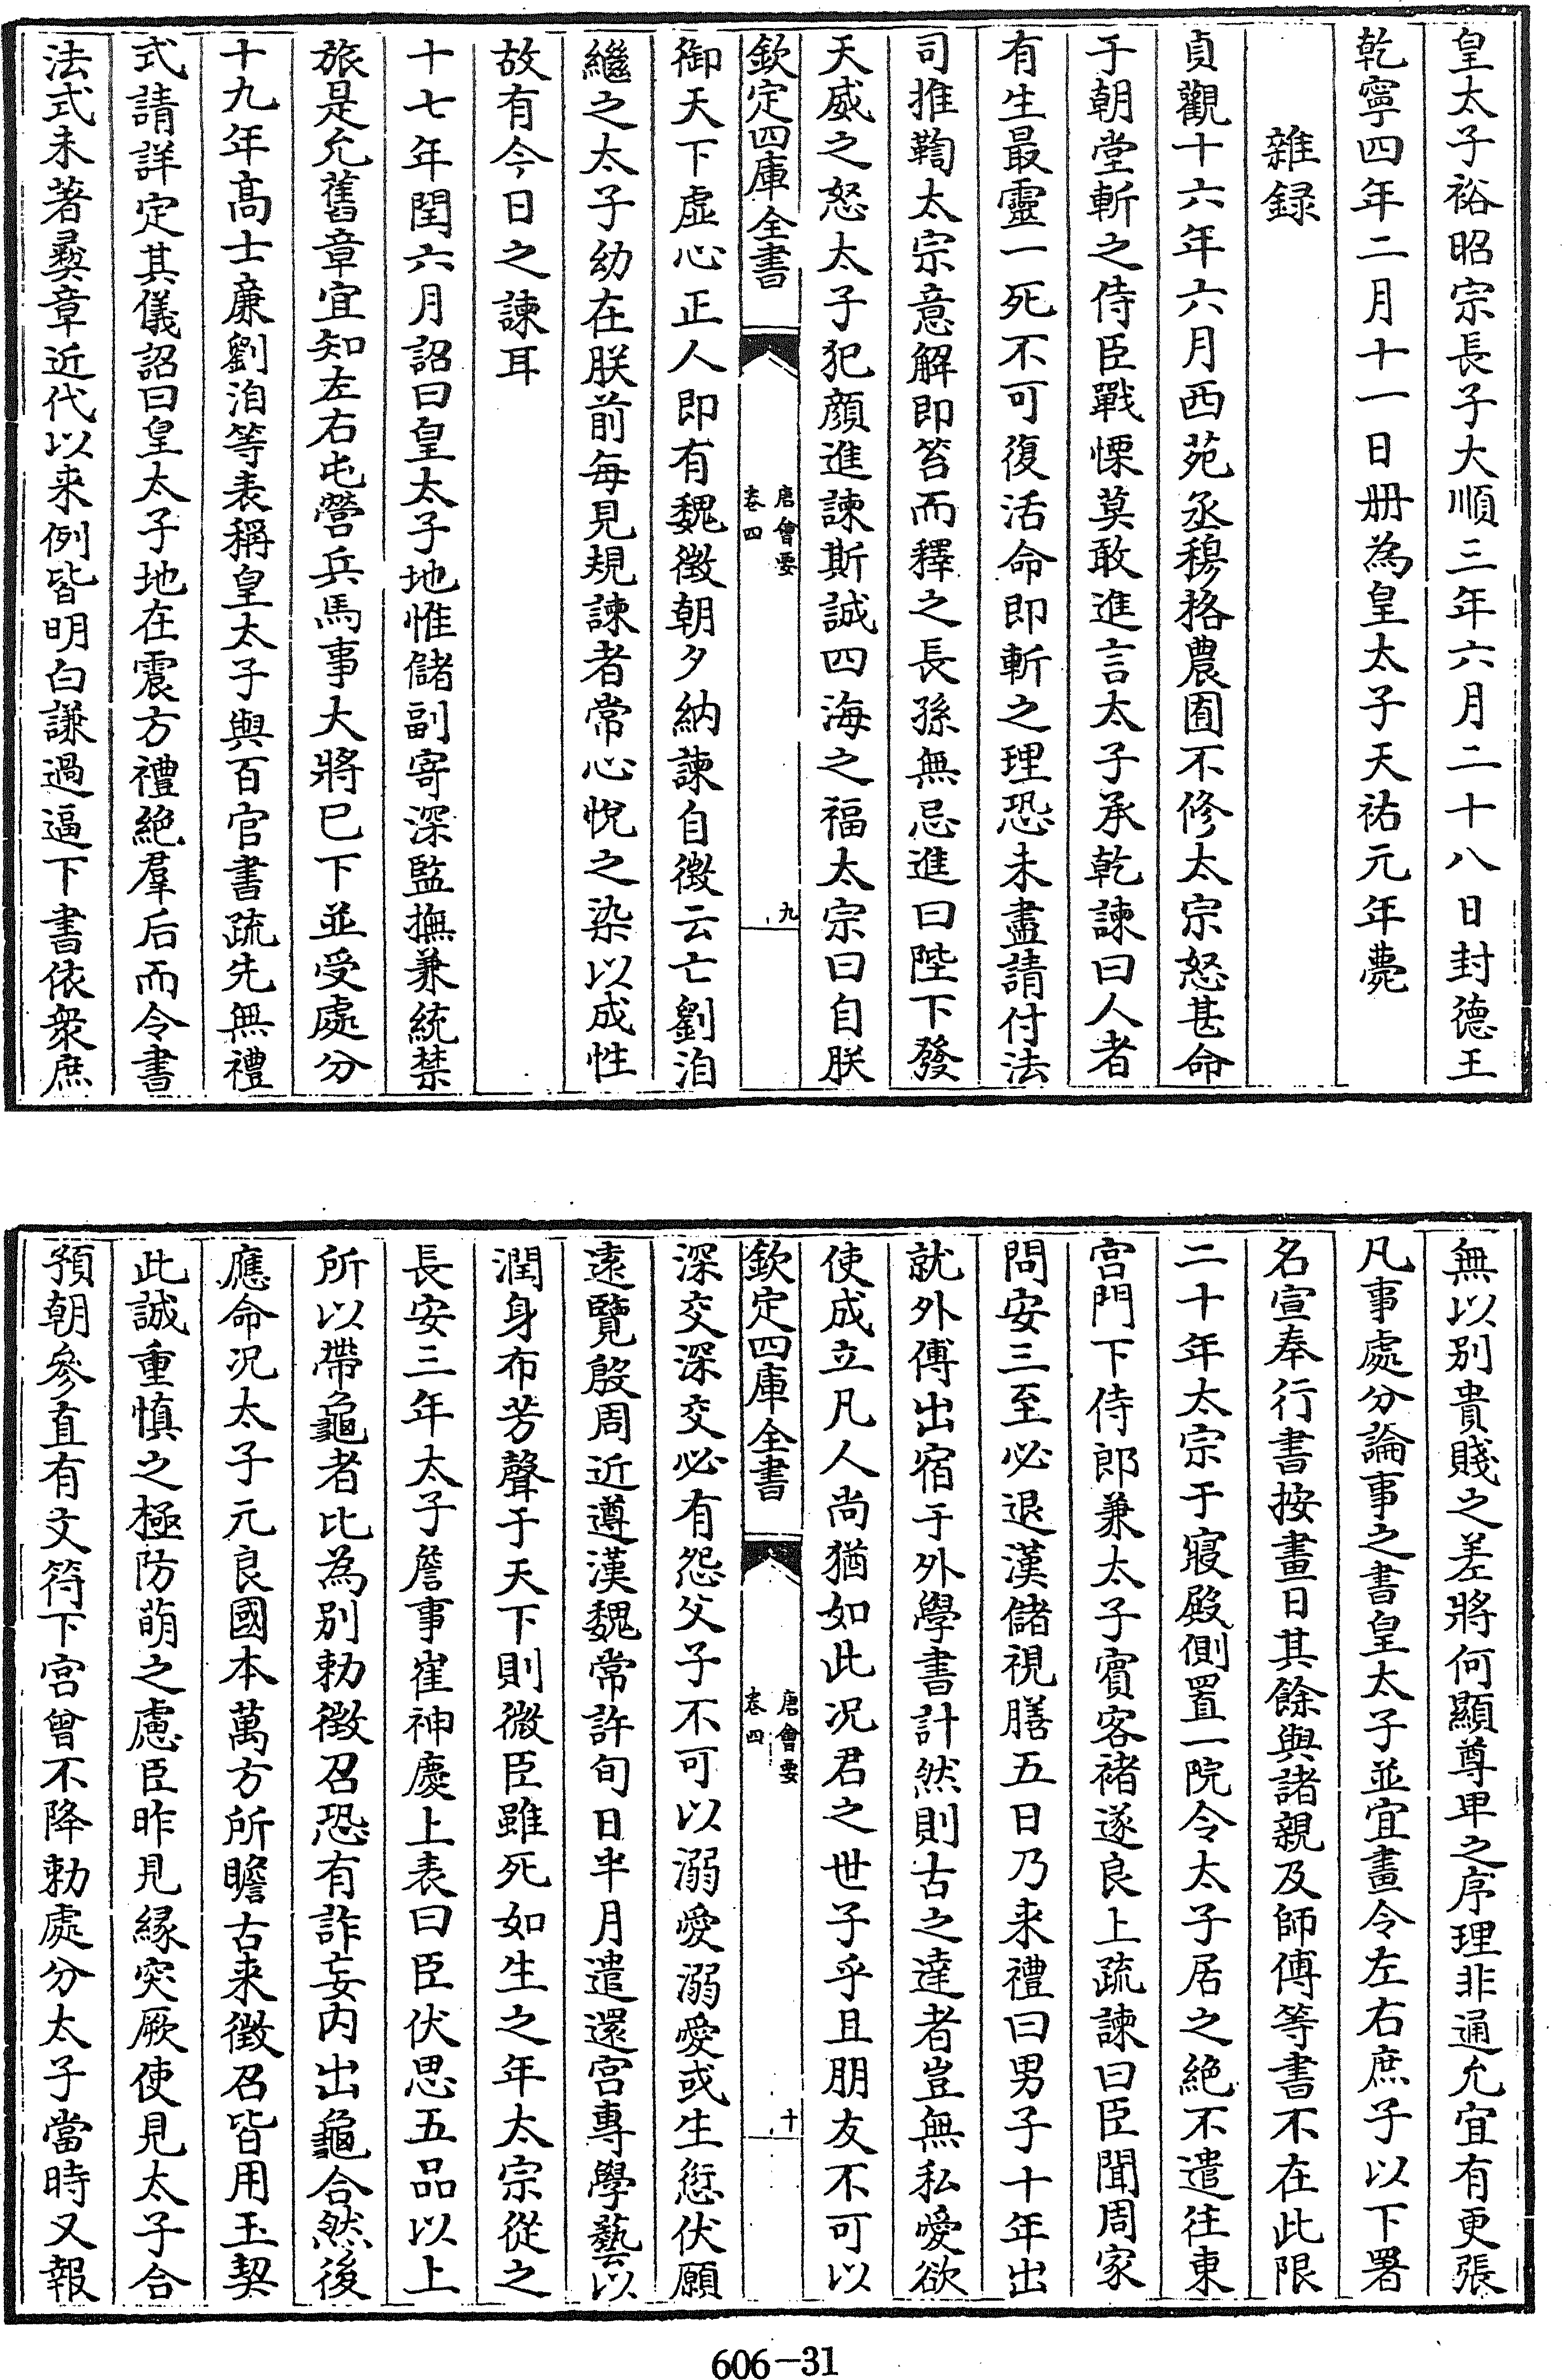 皇太子裕昭宗長子大順三年六月二十八日封德王
乾寧四年二月十一日册為皇太子天祐元年薨
雜録
貞觀十六年六月西苑丞穆格農囿不修太宗怒甚命
于朝堂斬之侍臣戰慄莫敢進言太子承乾諫曰人者
有生最靈一死不可復活命即斬之理恐未盡請付法
司推鞫太宗意解即笞而釋之長孫無忌進曰陛下發
天威之怒太子犯顔進諫斯誠四海之福太宗曰自朕
欽定四庫全書
唐會要
卷四
九
御天下虛心正人即有魏徵朝夕納諫自徵云亡劉洎
繼之太子幼在朕前每見規諫者常心悅之染以成性
故有今日之諫耳
十七年閏六月詔曰皇太子地惟儲副寄深監撫兼統禁
旅是允舊章宜知左右屯營兵馬事大將已下並受處分
十九年高士廉劉洎等表稱皇太子與百官書疏先無禮
式請詳定其儀詔曰皇太子地在震方禮絶羣后而令書
法式未著彛章近代以来例皆明白謙過逼下書依衆庶
無以别貴賤之差將何顯尊卑之序理非通允宜有更張
凡事處分論事之書皇太子並宜畫令左右庶子以下署
名宣奉行書按畫日其餘與諸親及師傅等書不在此限
二十年太宗于寢殿側置一院令太子居之絶不遣往東
宫門下侍郎兼太子賓客褚遂良上疏諫曰臣聞周家
問安三至必退漢儲視膳五日乃来禮曰男子十年出
就外傅出宿于外學書計然則古之達者豈無私愛欲
使成立凡人尚猶如此况君之世子乎且朋友不可以
欽定四庫全書
唐會要
卷四
十
深交深交必有怨父子不可以溺愛溺愛或生愆伏願
遠覽殷周近遵漢魏常許旬日半月遣還宫專學藝以
潤身布芳聲于天下則微臣雖死如生之年太宗從之
長安三年太子詹事崔神慶上表曰臣伏思五品以上
所以帶龜者比為别勅徴召恐有詐妄内出龜合然後
應命况太子元良國本萬方所瞻古来徵召皆用玉契
此誠重慎之極防萌之慮臣昨見縁突厥使見太子合
預朝參直有文符下宫曾不降勅處分太子當時又報
606-31